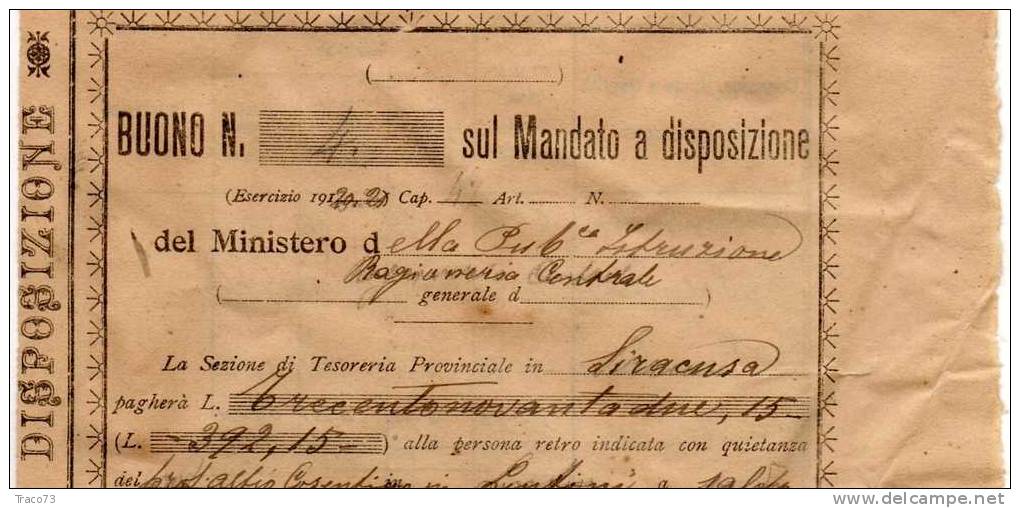 DISPOSIZIONE
BUONO N. 4. sul Mandato a disposizione
(Esercizio 191 Cap. Art. N.
del Ministero della Pub.ca Istruzione
Ragioneria Centrale
( generale d )
La Sezione di Tesoreria Provinciale in Siracusa
pagherà L. Trecentonovantadue, 15
(L. 392,15 ) alla persona retro indicata con quietanza
del prof. in a saldo
Traco73
delcampe.net